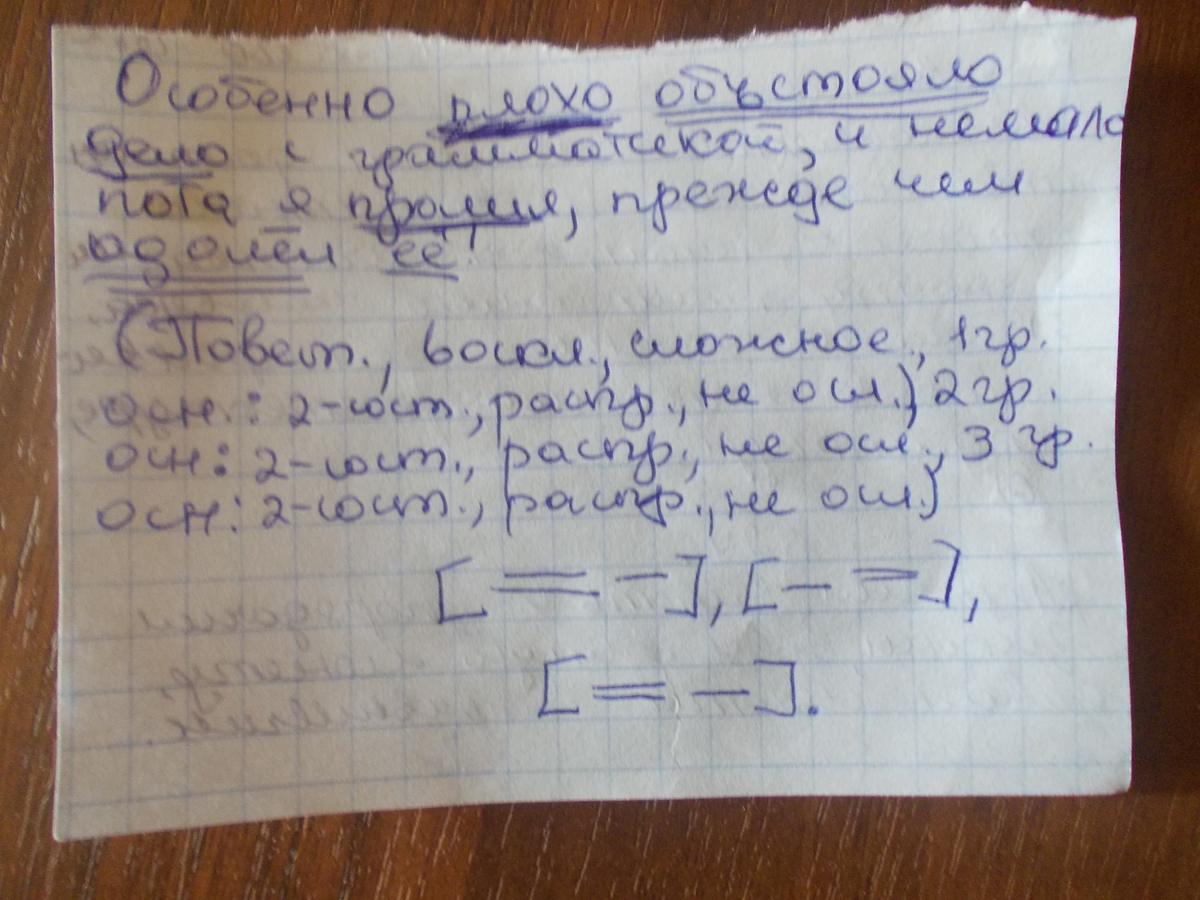 Особенно плохо обьстояло
дело с грамматикой, и немало
пота я пролил, прежде чем
одолел её!
(Повест., воскл., сложное, 1 гр.
осн.: 2-сост., распр., не осл.) 2 гр.
осн: 2-сост., распр., не осл., 3 гр.
осн: 2-сост., распр., не осл.)
[ == – ], [ – = ],
[ = – ].